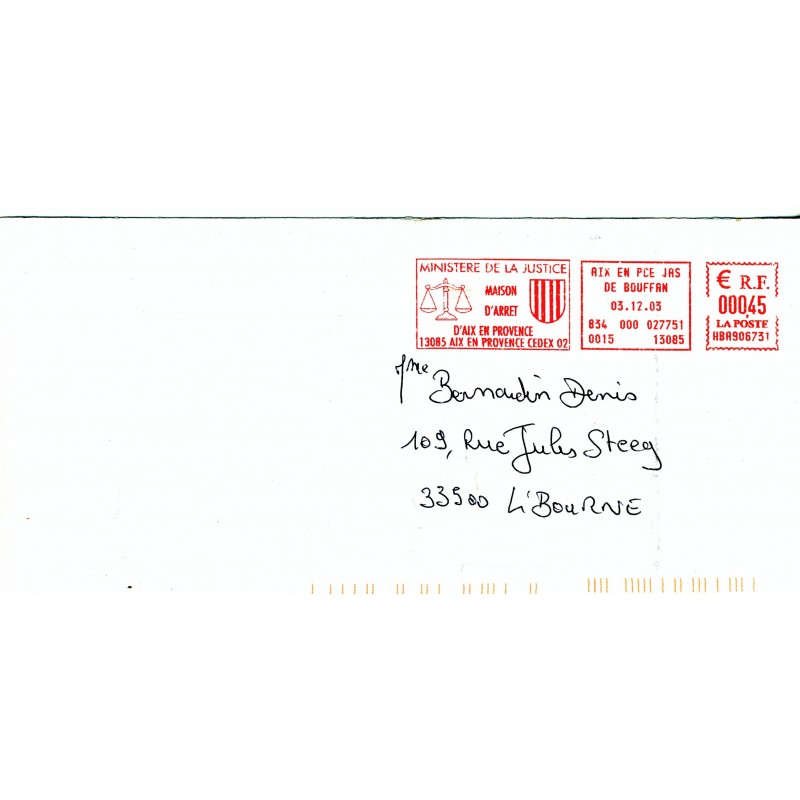 MINISTERE DE LA JUSTICE
MAISON
D'ARRET
D'AIX EN PROVENCE
13085 AIX EN PROVENCE CEDEX 02
AIX EN PCE JAS
DE BOUFFAN
03.12.03
834 000 027751
0015 13085
€ R.F.
000,45
LA POSTE
HBA906731
Me Bernardin Denis
109, Rue Jules Steeg
33500 LiBOURNE